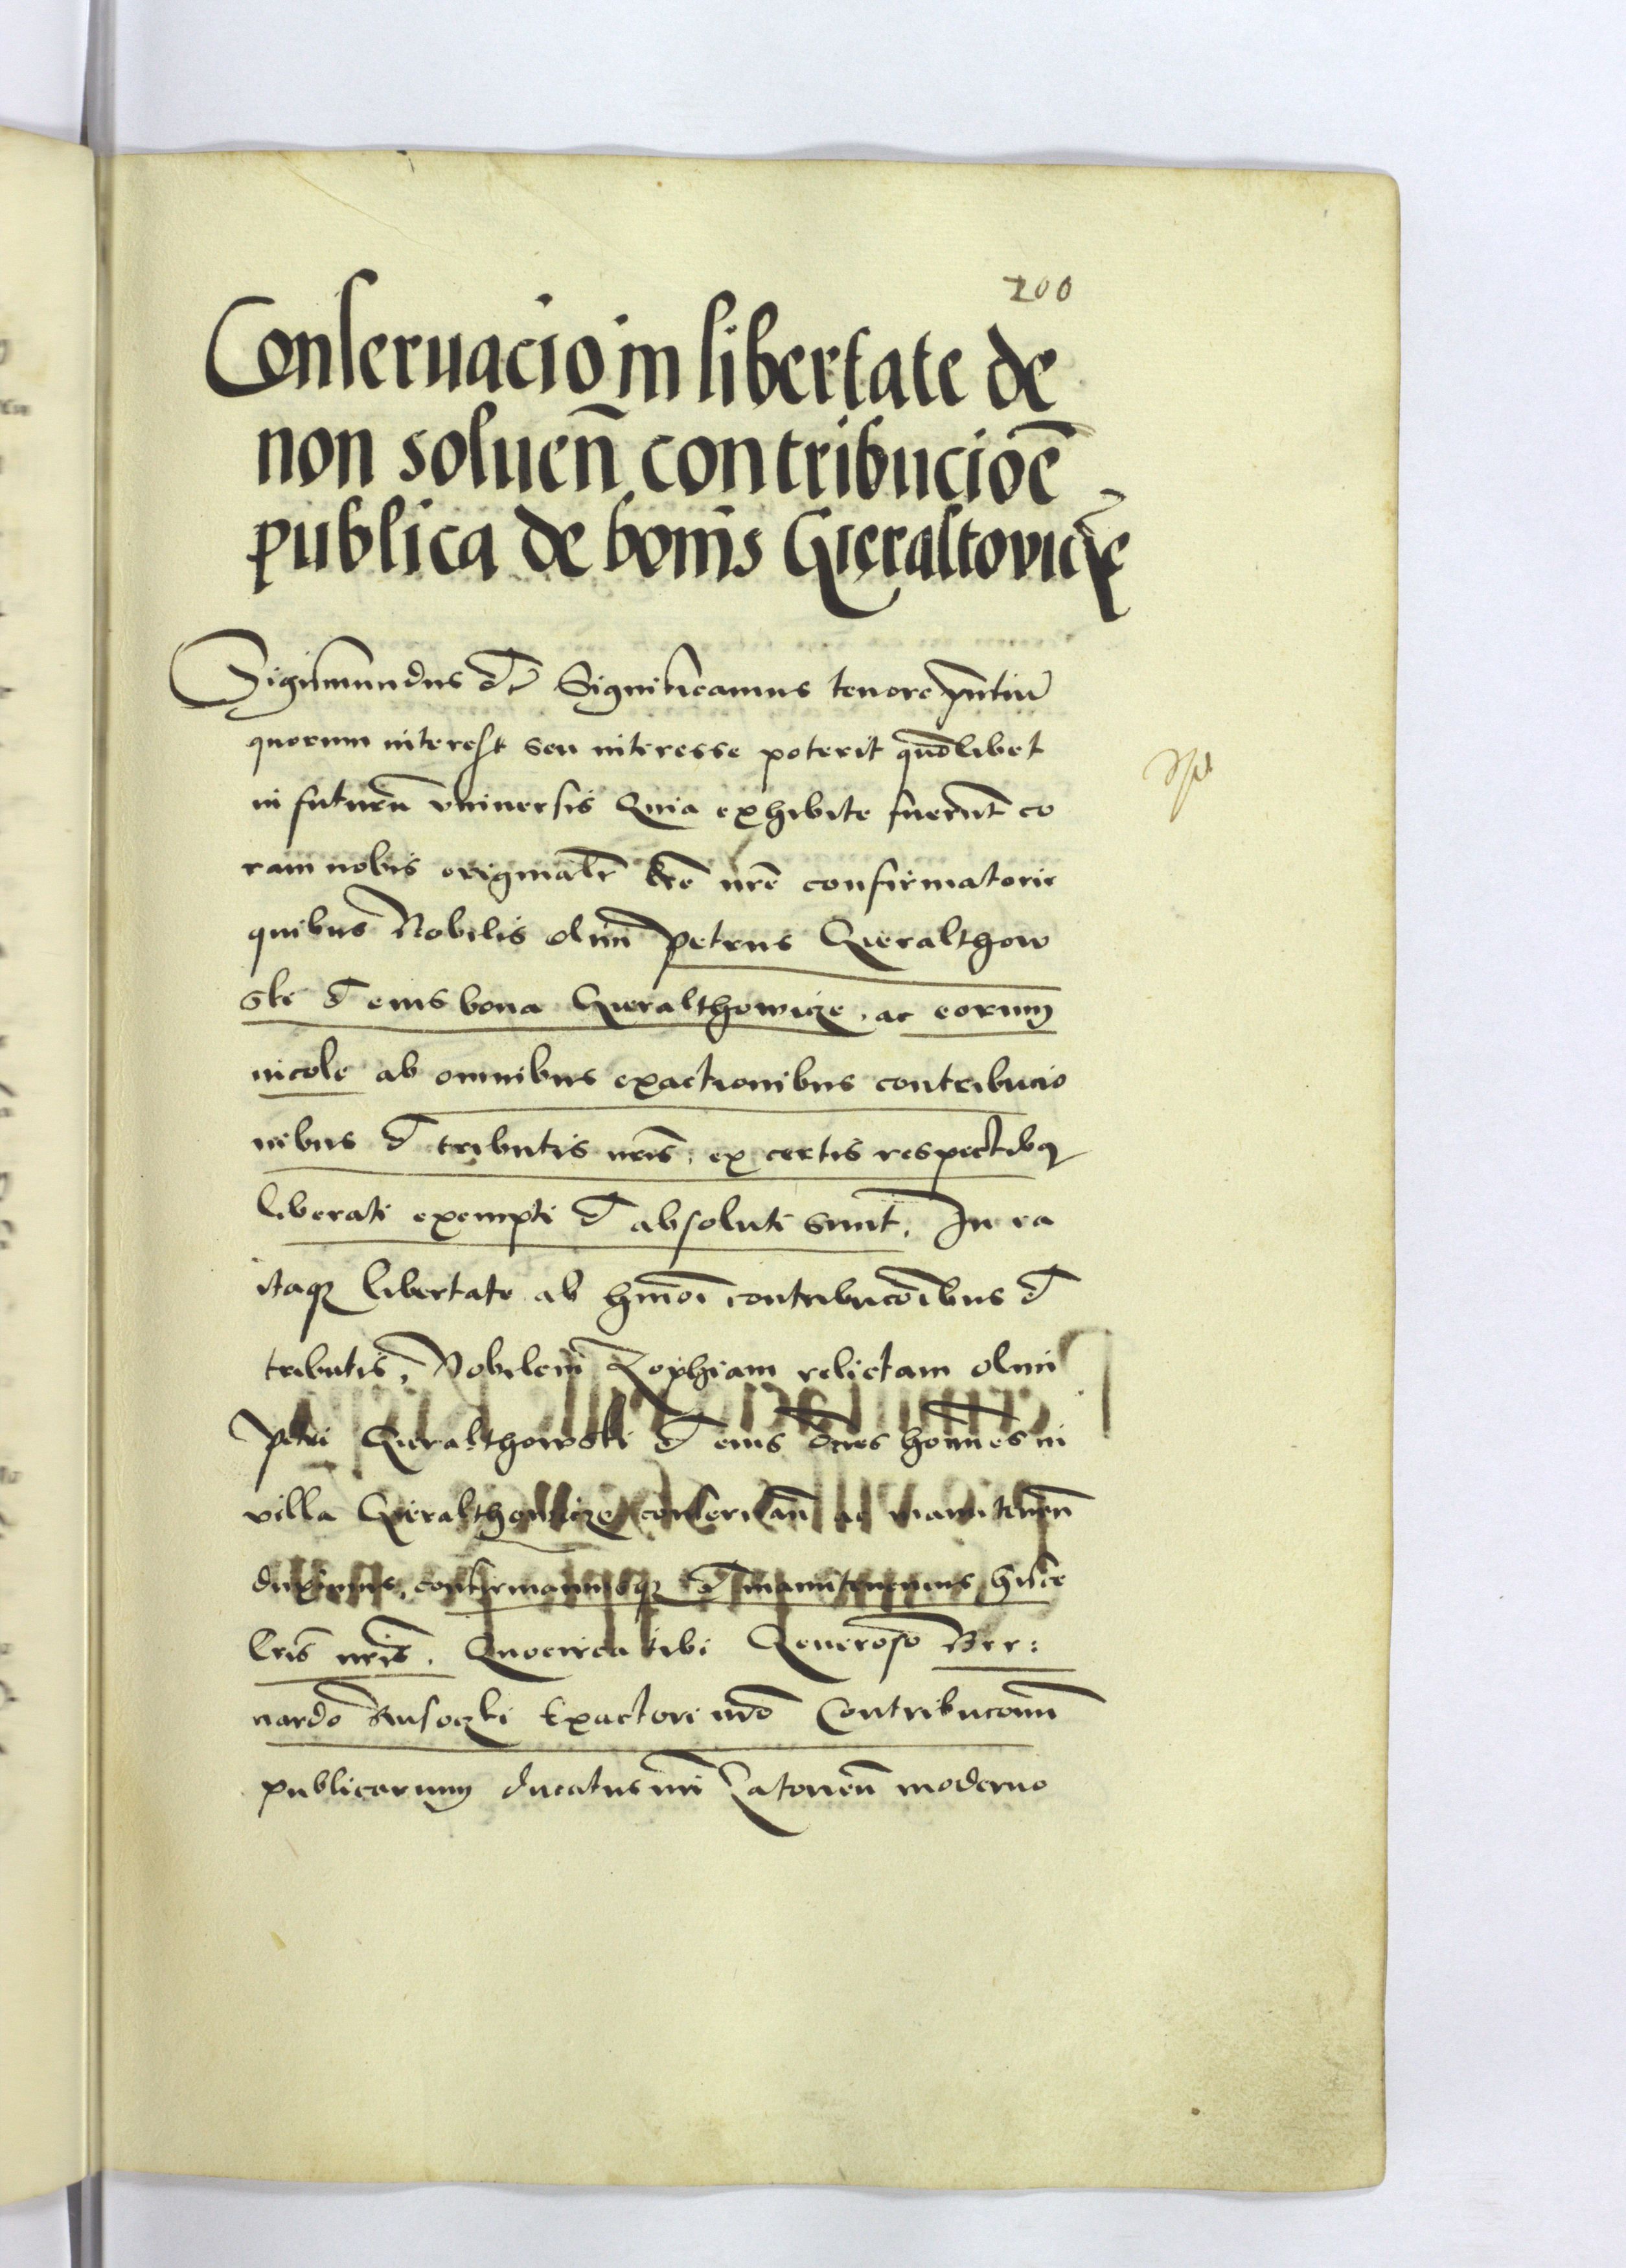 200
Conseruacio in libertate de
non soluen̄ contribucioē
publica de bonis Gieraltovicze
Sigismundus etc̃ Significamus tenore p̄ntiū
quorum interest seu interesse poterit quōlibet
in futurū vniuersis Quia exhibite fuerūt co
ram nobis originales lrē nrē confirmatorie
quibus Nobilis olim Petrus Gieralthow
ski et eius bona Gieralthowicze, ac eorum
incole ab omnibus exactionibus contribucio
nibus et tributis nrīs, ex certis respectibꝫ
liberati exempti et absoluti sunt. In ea
itaqꝫ libertate ab hmōi contribucōibus et
tributis, Nobilem Zophiam relictam olim
Petri Gieralthowski et eius om̄es hoīnes in
villa Gieralthowicze conseruan̄ ac manutenen̄
duximus, confirmamusqꝫ et manutenemus hisce
lrīs nrīs. Quocirca tibi Generoso Ber:
nardo Rusoczki Exactori nrō Contribucōnū
publicarum ducatus nrī Zatorien̄ moderno